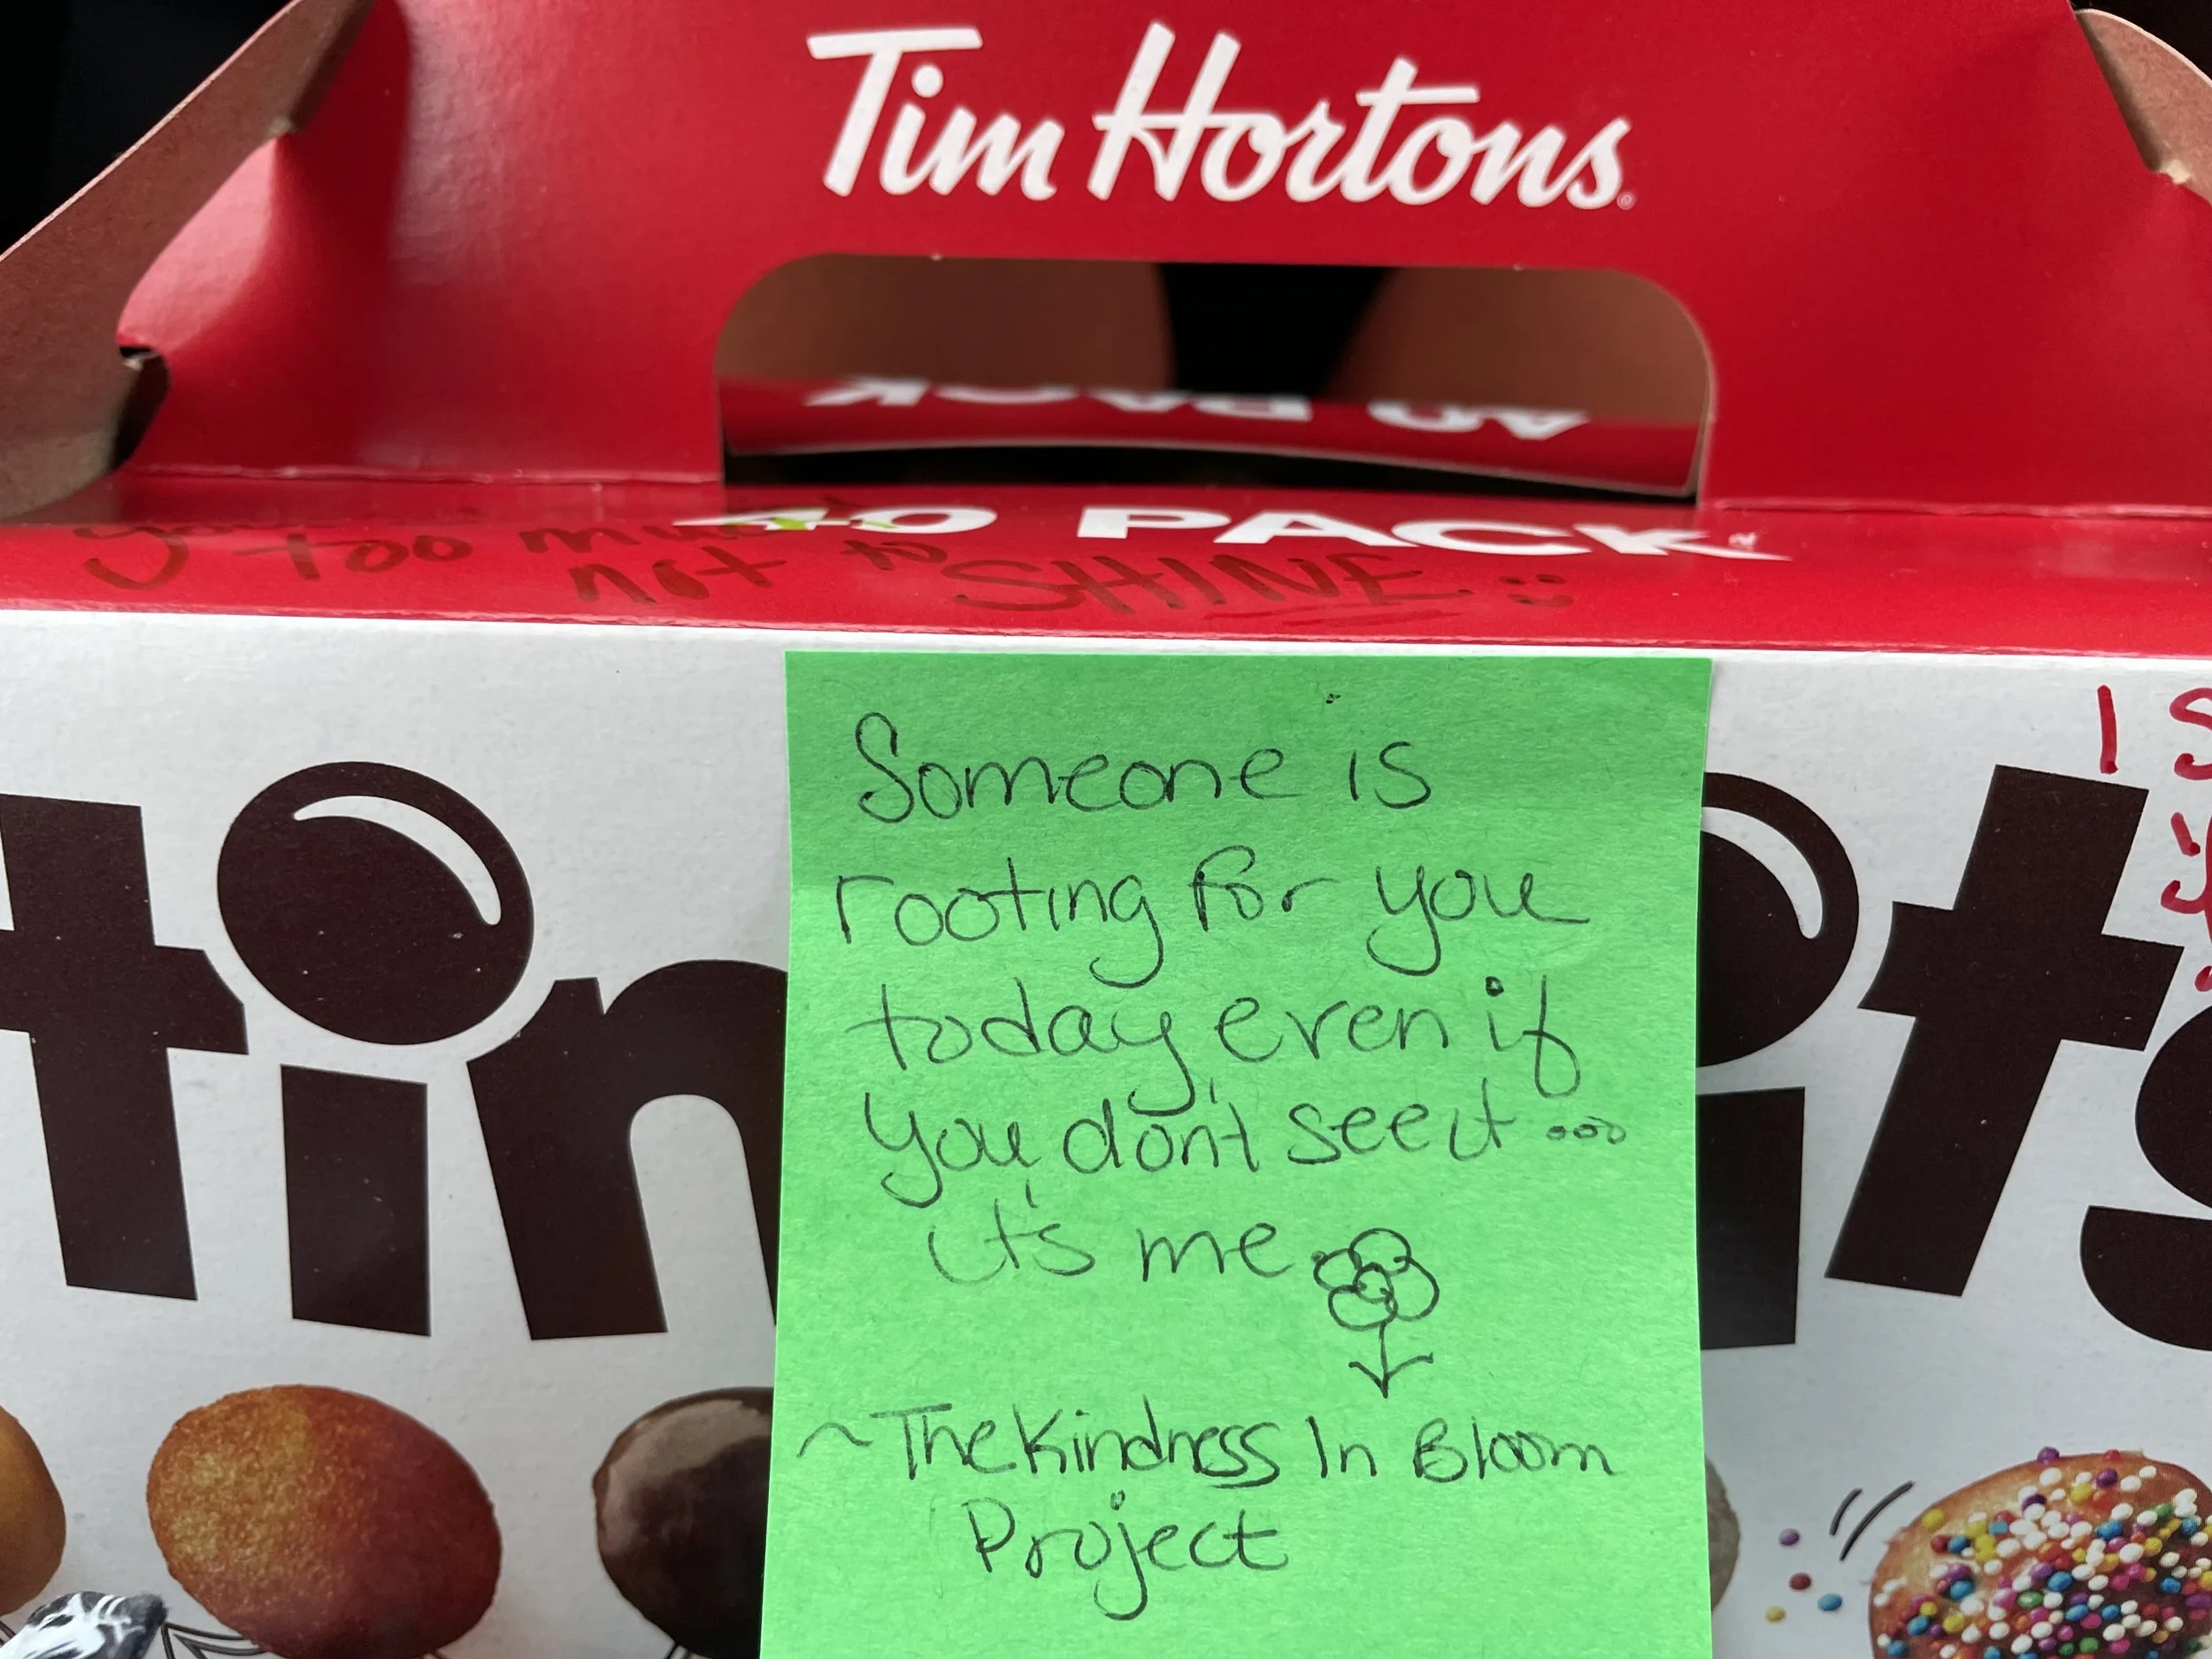 Tim Hortons
40 PACK
40 PACK
too
not to SHINE :)
Someone is
rooting for you
today, even if
you don't see it ...
it's me
~ The Kindness In Bloom
Project
I